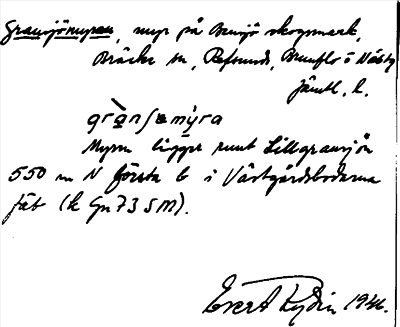 Gransjömyren, myr på Bensjö skogsmark,
Bräcke sn, Refsunds, Brunflo o Näsk
Jämtl. l.
grànʃømýra
Myren ligger runt Lillgransjön
550 m N första b i Västgårdsbodarna
fäb (k Gn 73 SM).
Evert Rydin 1946.